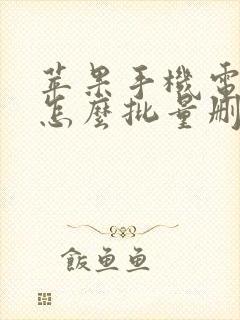 苹果手機電
怎麼批量刪
飯魚魚